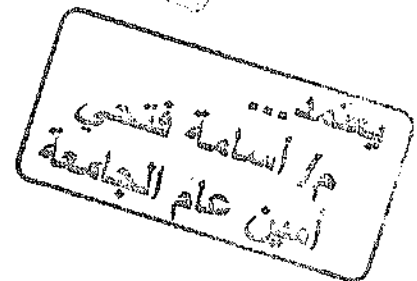 يعتمد...
م/ أسامة فتحي
أمين عام الجامعة